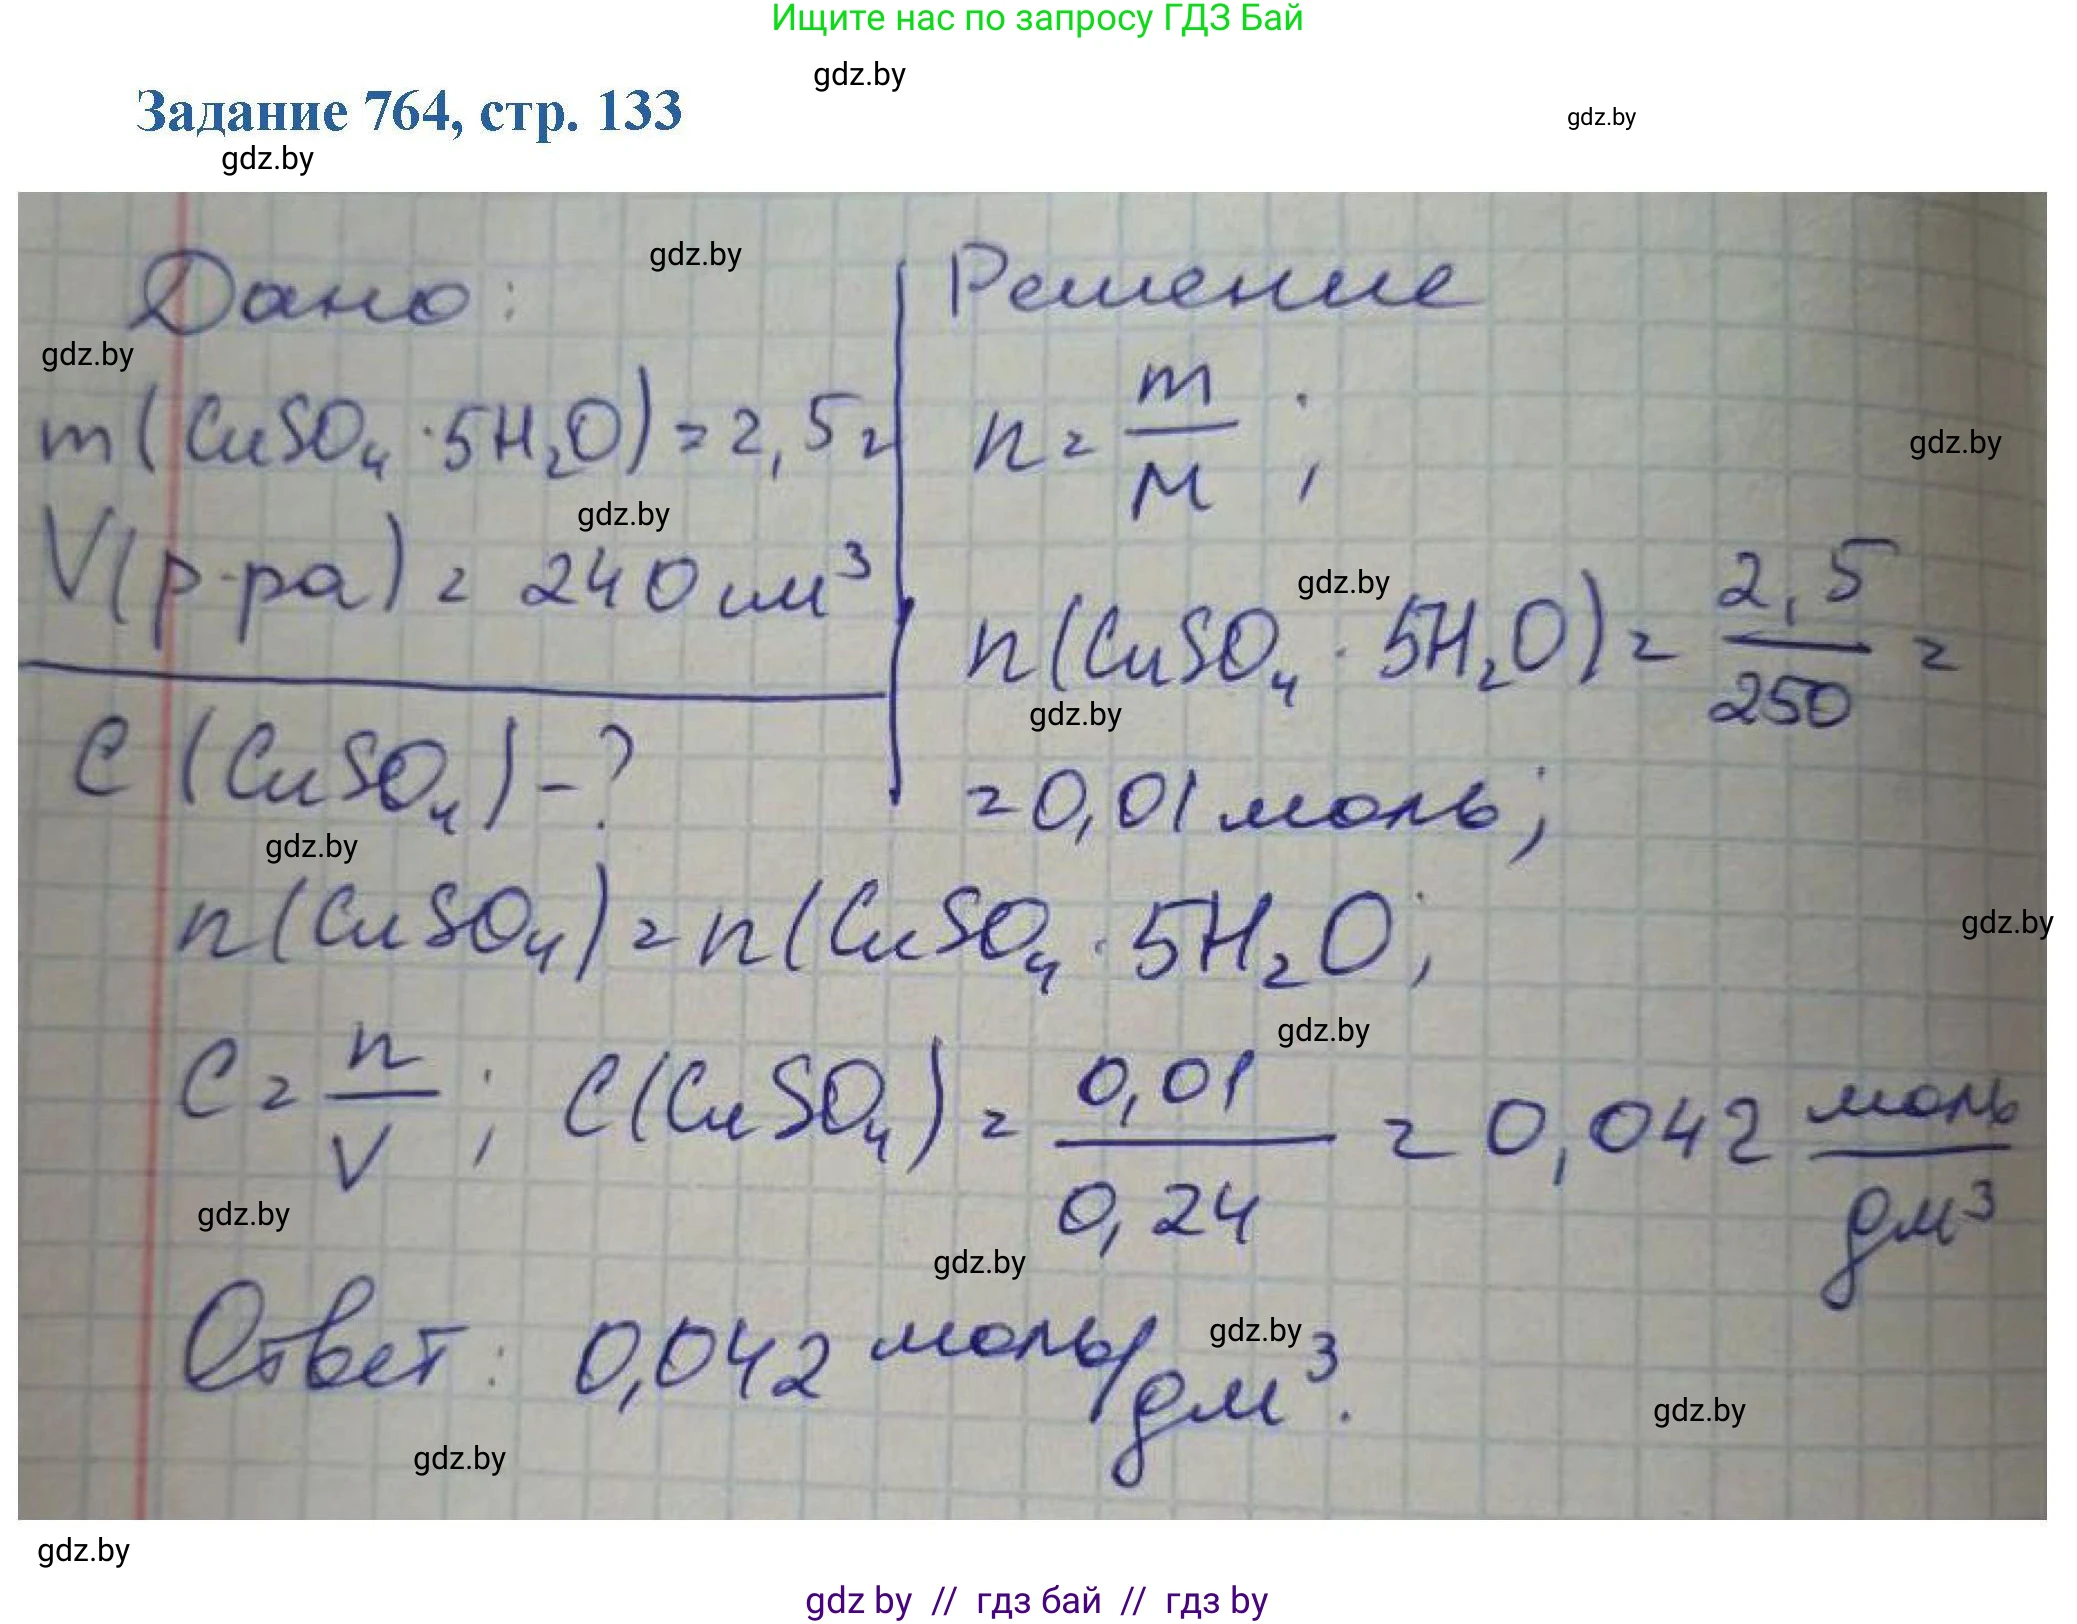 Ищите нас по запросу ГДЗ Бай
gdz.by
Задание 764, стр. 133
gdz.by
gdz.by
Дано:
gdz.by
Решение
gdz.by
m(CuSO₄·5H₂O)=2,5г
n = m/M ;
gdz.by
gdz.by
V(р-ра) = 240 см³
gdz.by
n(CuSO₄ · 5H₂O) = 2,5/250 =
gdz.by
C (CuSO₄) - ?
= 0,01 моль;
gdz.by
n(CuSO₄) = n(CuSO₄ · 5H₂O;
gdz.by
gdz.by
C = n/V ; C(CuSO₄) = 0,01/0,24 = 0,042 моль/дм³
gdz.by
gdz.by
Ответ: 0,042 моль/дм³.
gdz.by
gdz.by
gdz.by
gdz.by
gdz by // гдз бай // гдз by